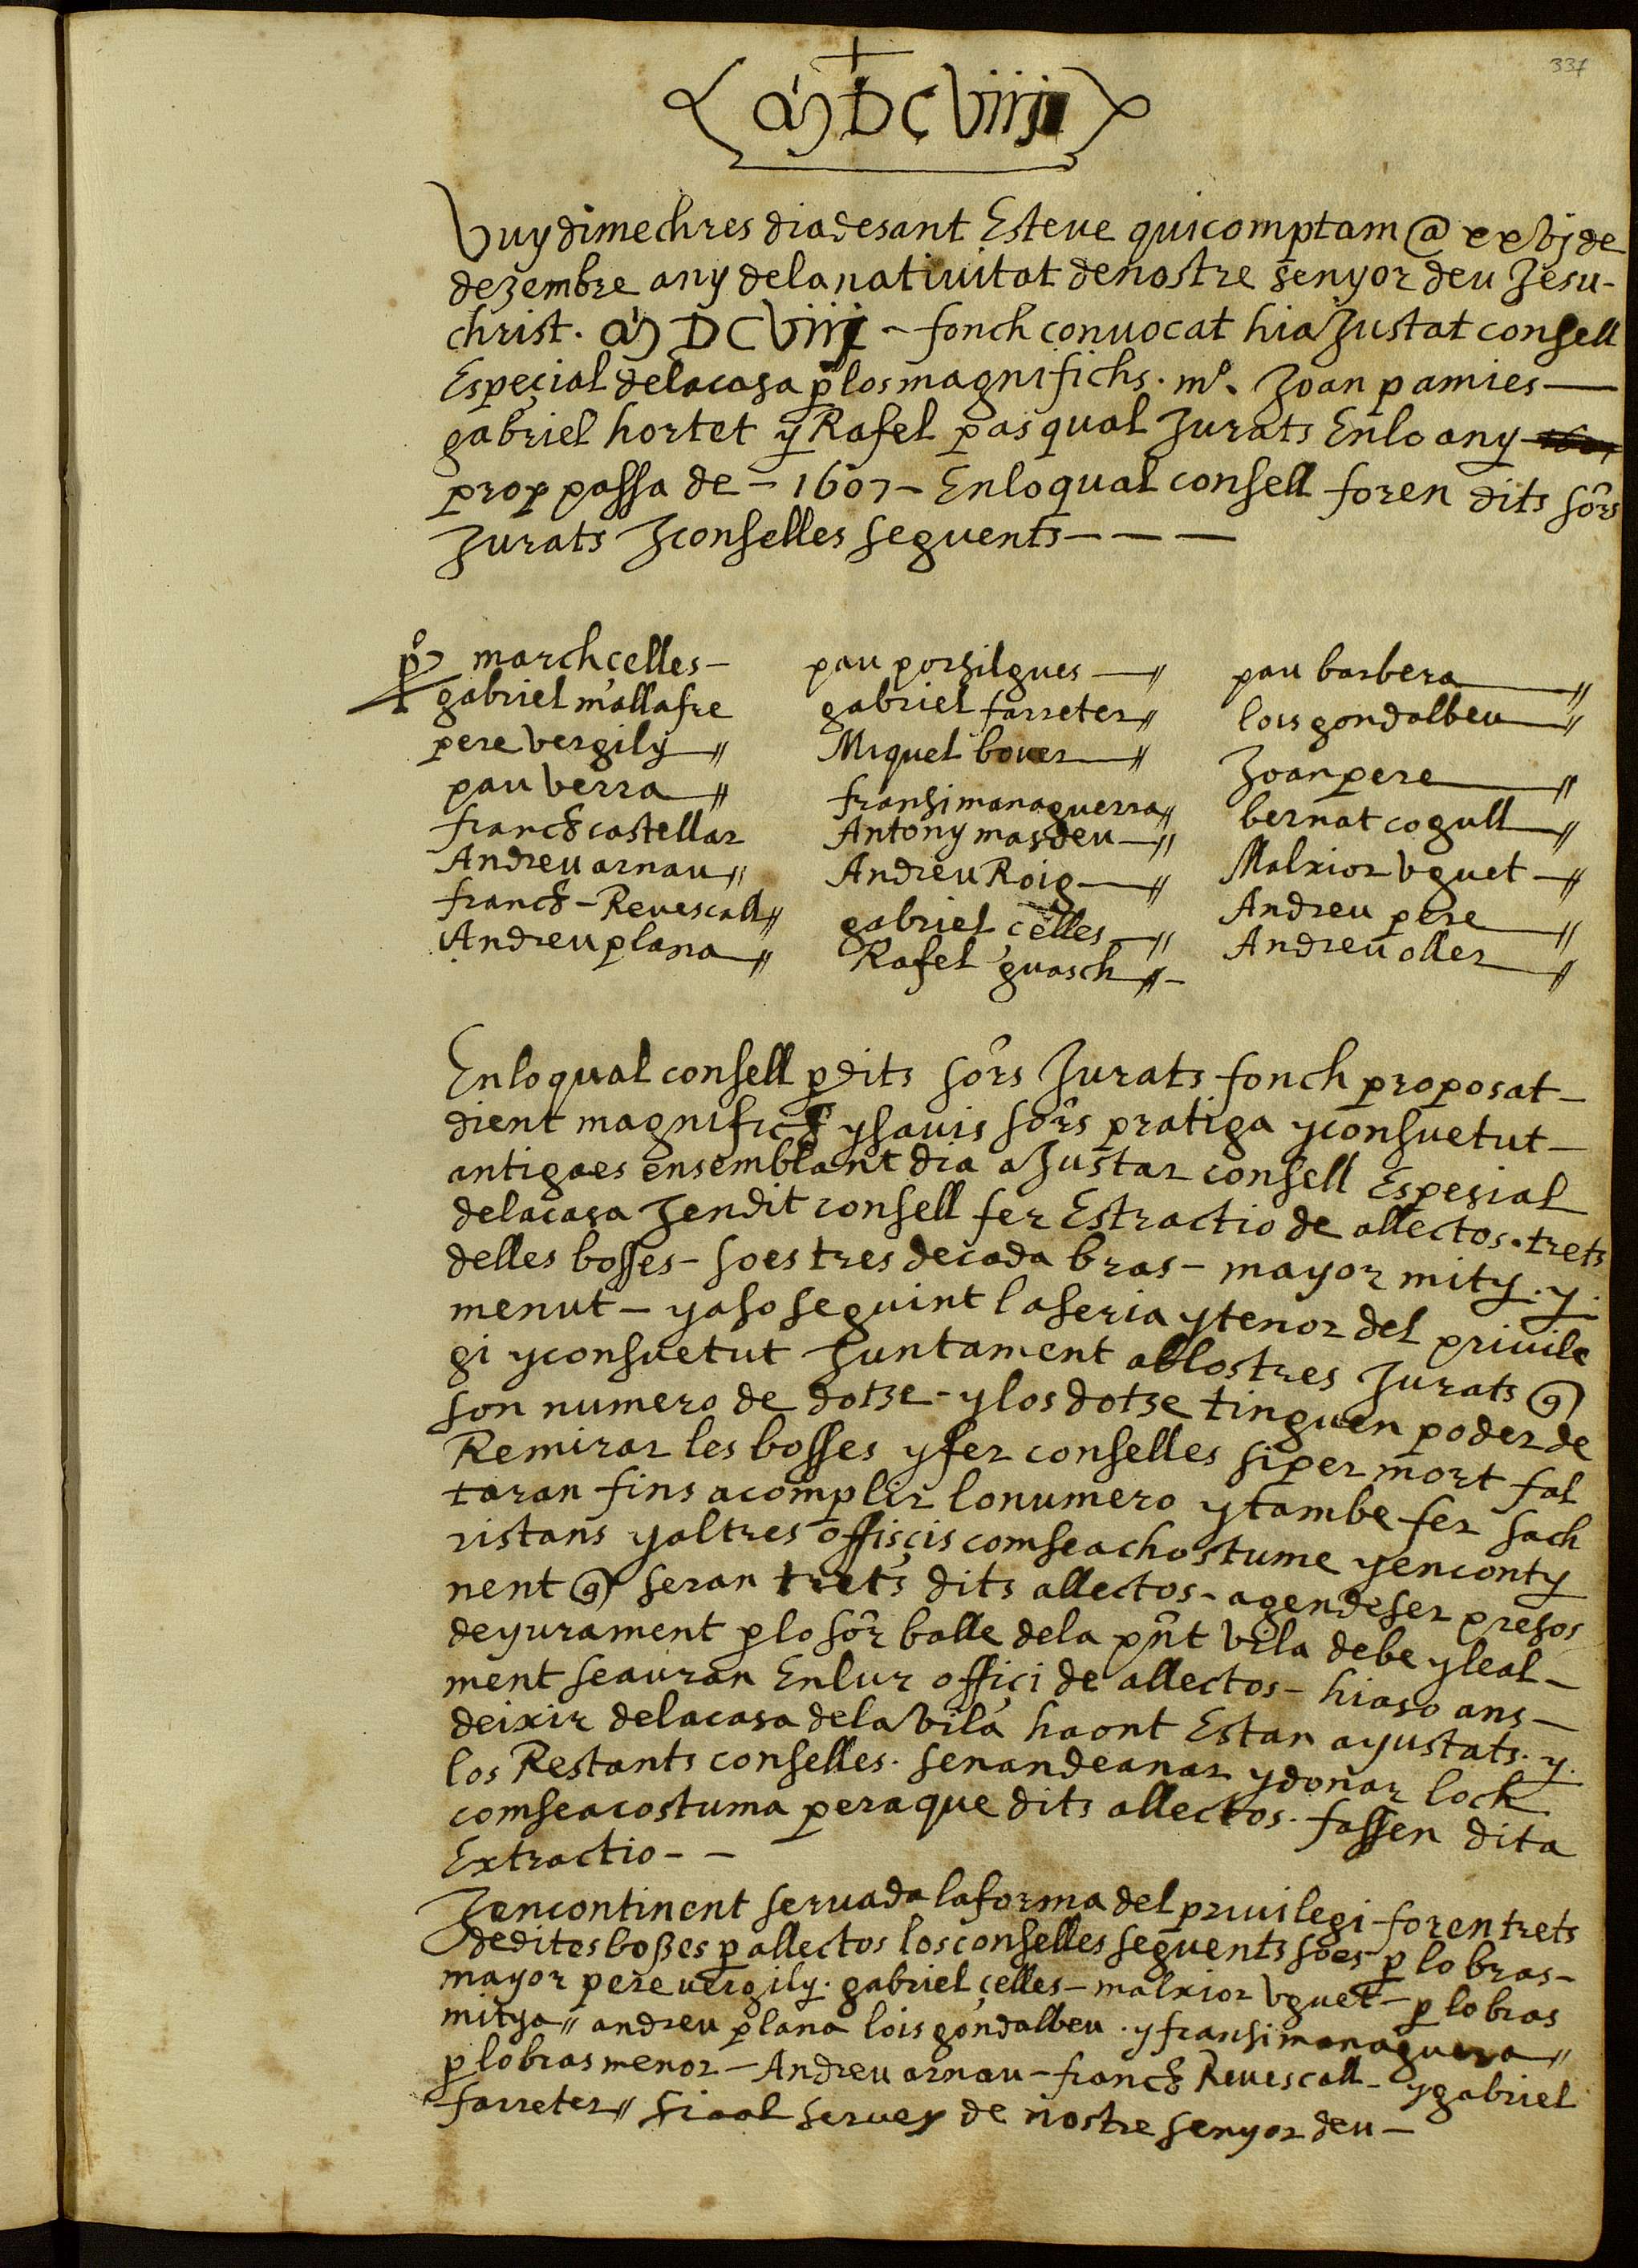 337
+
@M DC Viiij
Vuy dimechres dia de sant Esteue qui comptam @ xxvj de
dezembre any de la natiuitat de nostre senyor deu Jesu-
christ. @M DC Viiij - fonch conuocat hia Justat consell
Espeçial de la casa p los magnifichs. mº. Joan pamies —
gabriel hortet y Rafel pasqual Jurats En lo any
prop passa de - 1607 - En lo qual consell foren dits sôrs
Jurats J conselles seguents - - —
pº march çelles - pau porsilgues —// pau barbera —//
gabriel mallafre gabriel farreter // lois gondalbeu —//
pere vergily —// Miquel bouer —// Joan pere —//
pau verra —// fransi managuerra // bernat cogull —//
franch castellar Antony masdeu —// Malxior vguet —//
Andreu arnau // Andreu Roig —// Andreu pere —//
franch - Reuescall // gabriel çelles —// Andreu oller —//
Andreu plana —// Rafel guasch // -
En lo qual consell p dits sôrs Jurats fonch proposat -
dient magnifichs y sauis sôrs pratiga y consuetut -
antiga es en semblant dia a Justar consell Espesial
de la casa J en dit consell fer Estractio de allectos. trets
delles bosses - so es tres de cada bras - mayor mity. y.
menut - y aso seguint la seria y tenor del priuile
gi y consuetut Juntament ab los tres Jurats q
son numero de dotse - y los dotse tinguen poder de
Remirar les bosses y fer conselles si per mort fal
taran fins a complir lo numero y tambe fer sach
ristans y altres offisçis com se achostume y en conty
nent q seran trets dits allectos - agen de ser presos
de yurament p lo sôr balle de la pñt vila de be y leal -
ment se auran En lur offiçi de allectos - hi aso ans -
de ixir de la casa de la vila ha ont Estan ayustats. y.
los Restants conselles. sen an de anar y donar loch
com se acostuma pera que dits allectos. fassen dita
Extractio - -
J encontinent seruada la forma del priuilegi foren trets
de dites bosses p allectos los conselles seguents so es p lo bras -
mayor pere vergily. gabriel çelles - malxior vguet - p lo bras
mitya // andreu plana lois gondalbeu. y fransi managuera //
p lo bras menor - Andreu arnau - franch Reuescall - y gabriel
farreter // sia al seruey de nostre senyor deu -